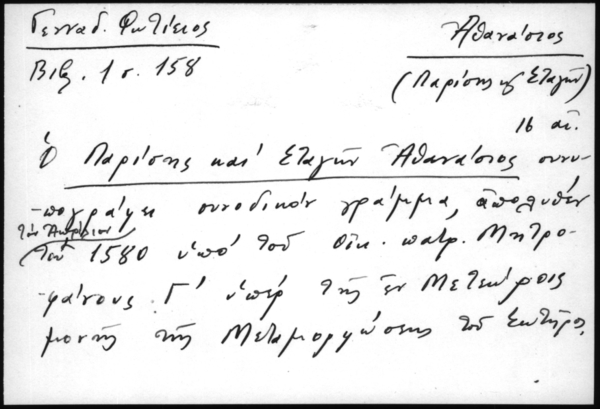 Γενναδ. Φωτίειος
Βιβ. 1 σ. 158
Ἀθανάσιος
(Παρίσης καὶ Σταγῶν)
16 αἰ.
Ὁ Παρίσης καὶ Σταγῶν Ἀθανάσιος συνυ-
πογράφει συνοδικὸν γράμμα, ἀπολυθὲν
τὸν Ἀπρίλιον
τοῦ 1580 ὑπὸ τοῦ Οἰκ. πατρ. Μητρο-
φάνους Γ' ὑπὲρ τῆς ἐν Μετεώροις
μονῆς τῆς Μεταμορφώσεως τοῦ Σωτῆρος.